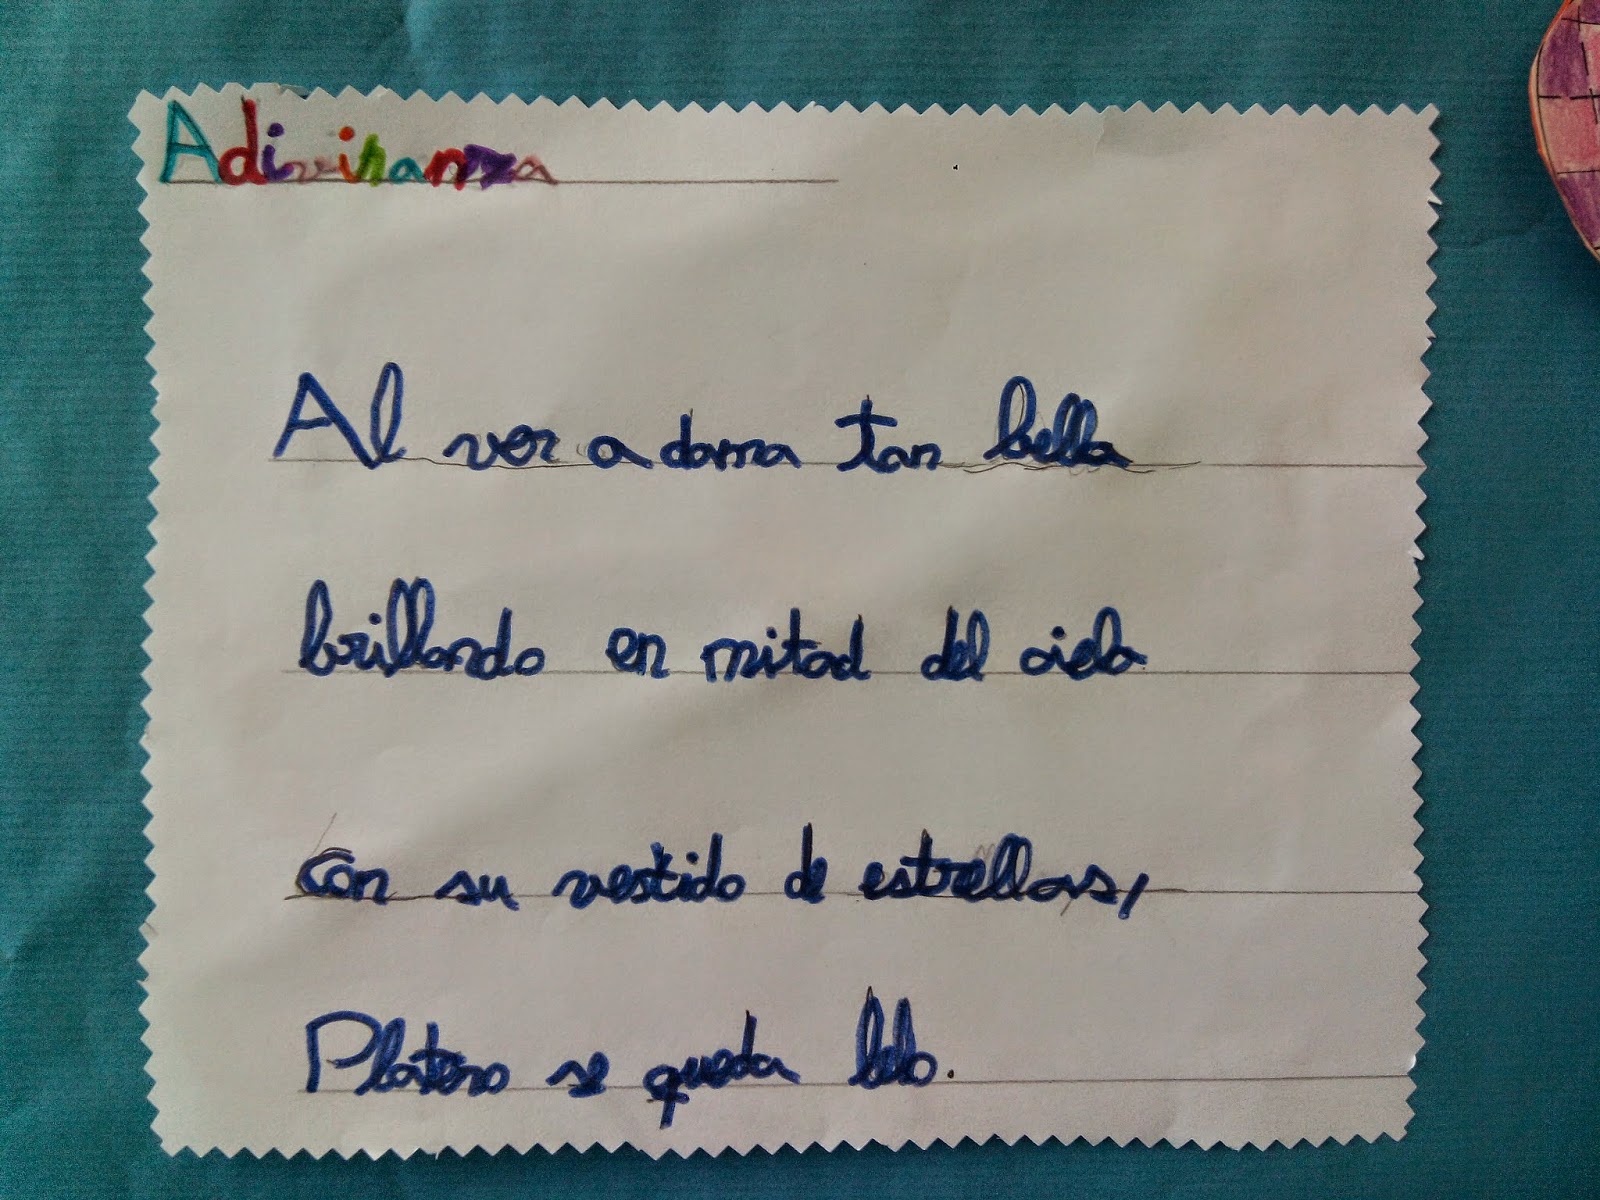 Adivinanza
Al ver a dama tan bella
brillando en mitad del cielo
con su vestido de estrellas,
Platero se queda lelo.